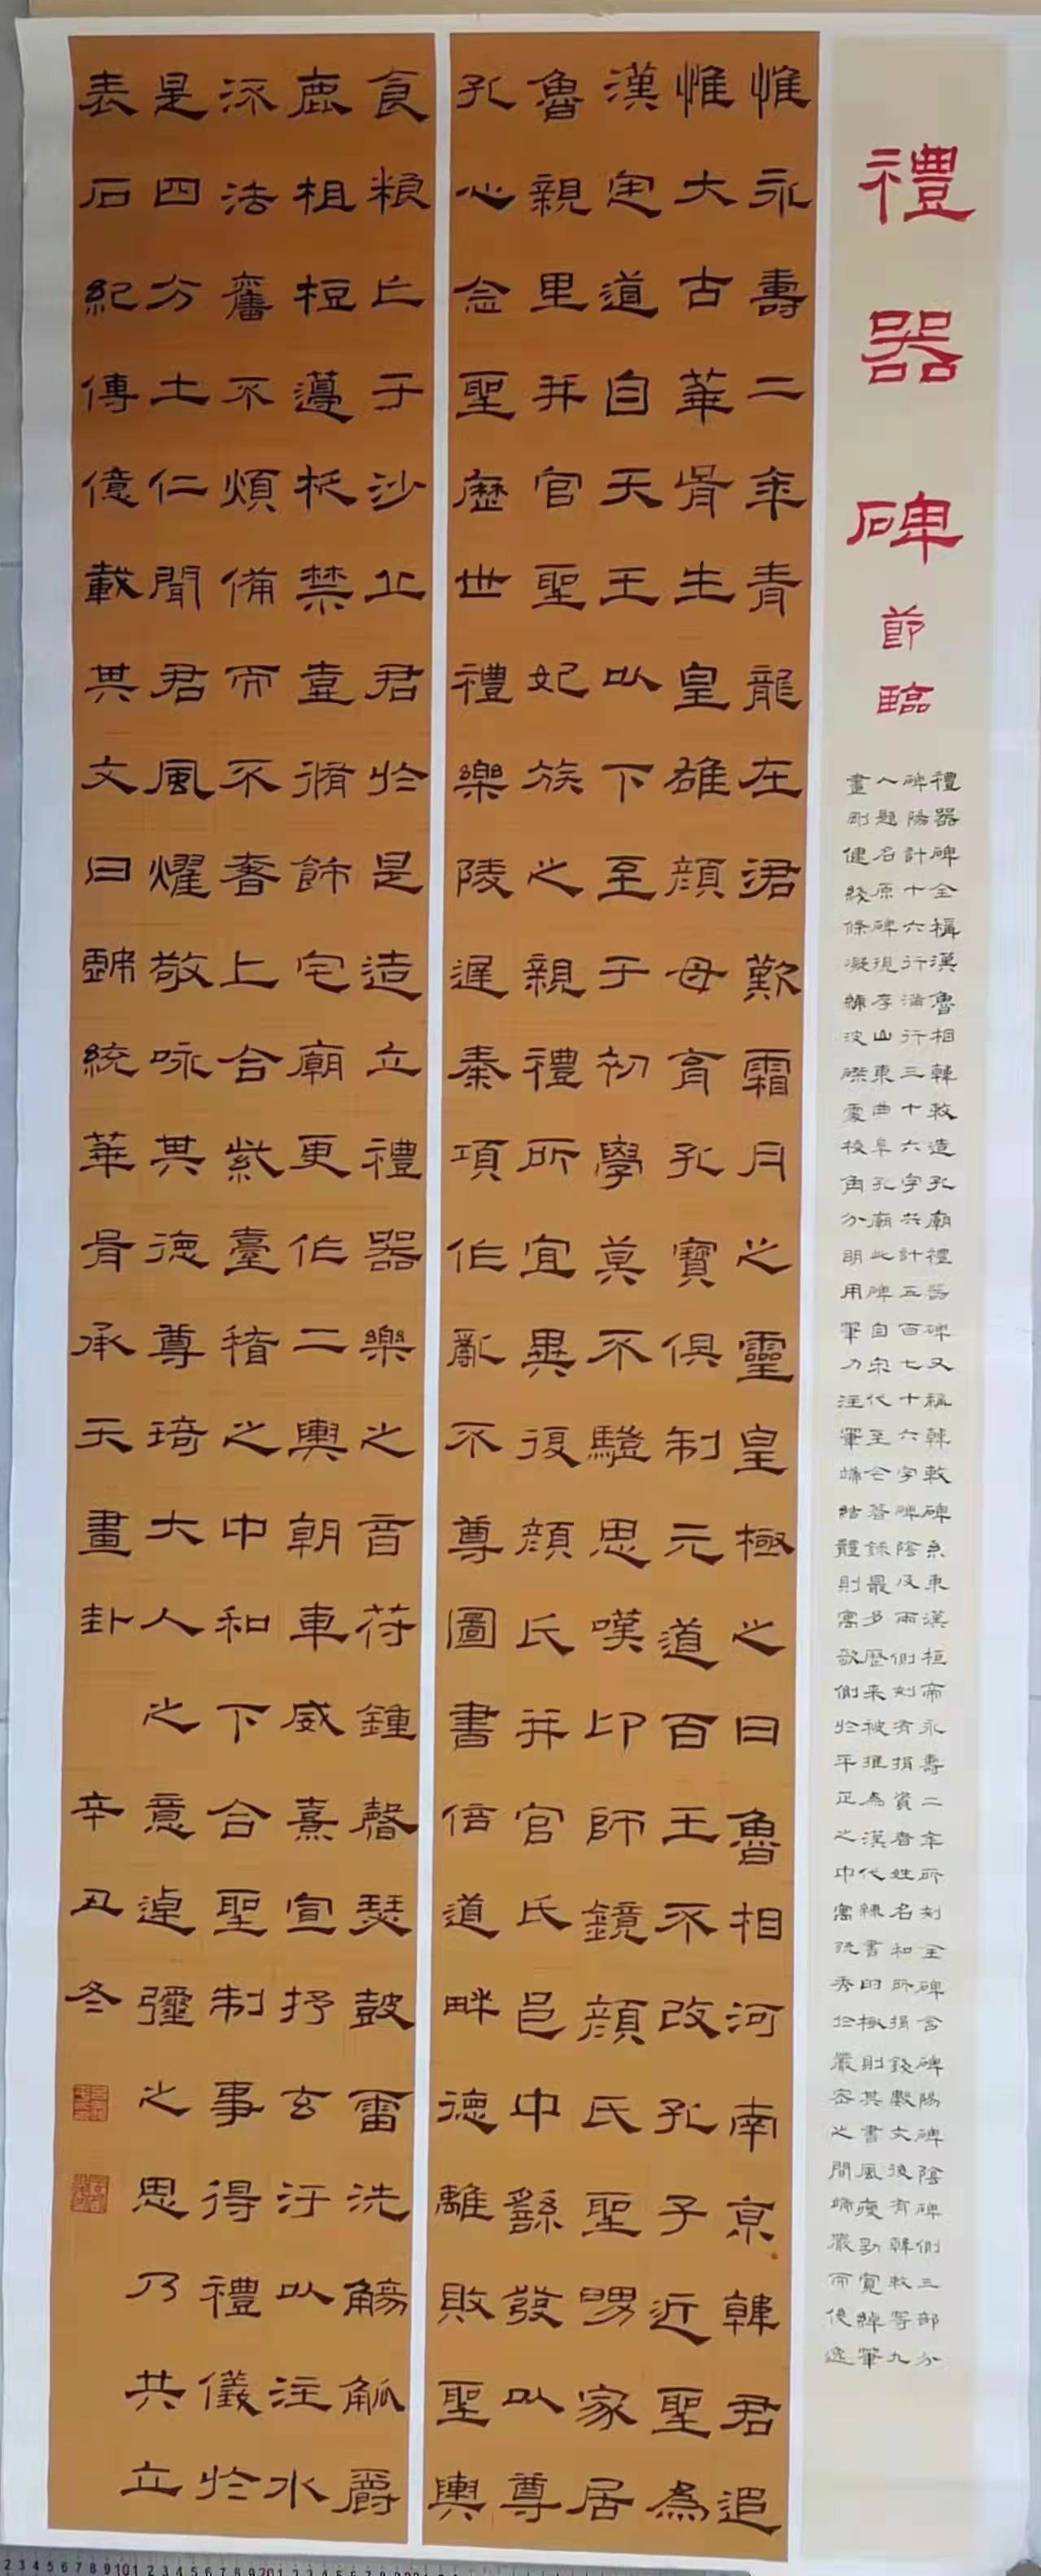 禮器碑節臨
禮器碑全稱漢魯相韓敕造孔廟禮器碑又稱韓敕碑系東漢桓帝永壽二年所刻全碑含碑陽碑陰碑側三部分
碑陽計十六行滿行三十六字共計五百七十六字碑陰及兩側刻有捐資者姓名和所捐錢數文後有韓敕等九
人題名原碑現存山東曲阜孔廟此碑自宋代至今著錄最多歷来被推為漢代隸書的極則其書風瘦勁寬綽筆
畫剛健綫條凝練波磔處棱角分明用筆力注筆端結體則寓欹側於平正之中寓疏秀於嚴密之間端嚴而俊逸
惟永壽二年青龍在涒歎霜月之靈皇極之日魯相河南京韓君追
惟大古華胥生皇雄顏母育孔寶俱制元道百王不改孔子近聖為
漢定道自天王以下至于初學莫不驥思嘆卬師鏡顏氏聖舅家居
魯親里并官聖妃族之親禮所宜異復顏氏并官氏邑中繇發以尊
孔心念聖歷世禮樂陵遲秦項作亂不尊圖書倍道畔德離敗聖輿
食粮亡于沙丘君於是造立禮器樂之音符鍾磬瑟鼓雷洗觴觚爵
鹿柤梪籩柉禁壺脩飾宅廟更作二輿朝車威熹宣抒玄汙以注水
流法舊不煩備而不奢上合紫臺稽之中和下合聖制事得禮儀於
是四方士仁聞君風燿敬咏其德尊琦大人之意逴彌之思乃共立
表石紀傳億載其文曰戲統華胥承天畫卦 辛丑冬